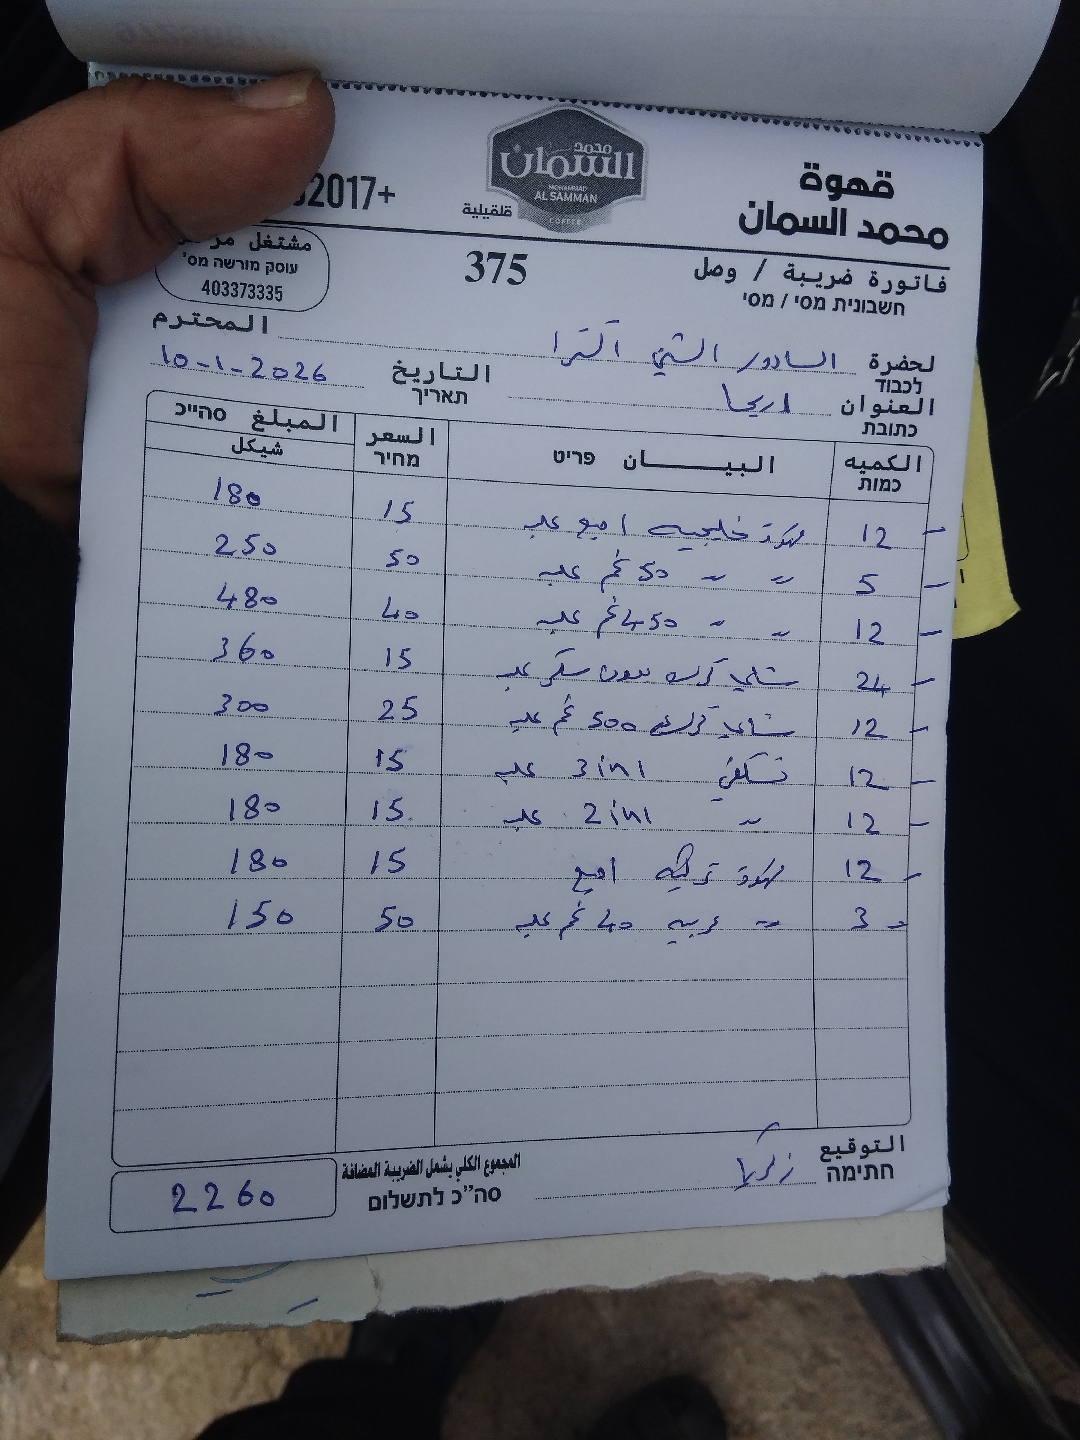 قهوة
محمد السمان
محمد
السمان
MOHAMMAD
AL SAMMAN
COFFEE
قلقيلية
2017+
فاتورة ضريبة / وصل
חשבונית מסי / מסי
375
مشتغل
עוסק מורשה מס'
403373335
لحضرة
المحترم
לכבוד
العنوان اريحا
כתובת
التاريخ 10-1-2026
תאריך
الكميه البيــــان פריט السعر المبلغ סה״כ
כמות מחיר شيكل
12 قهوة خليجيه اصبع علب 15 180
5 " " 50 غم علب 50 250
12 " " 450 غم علب 40 480
24 شاي كرك بدون سكر علب 15 360
12 شاي كرك 500 غم علب 25 300
12 نسكفي 3in1 علب 15 180
12 " 2in1 علب 15 180
12 قهوة تركيه اصبع 15 180
3 " عربيه 40 غم علب 50 150
التوقيع زكريا
חתימה
المجموع الكلي يشمل الضريبة المضافة
סה״כ לתשלום
2260